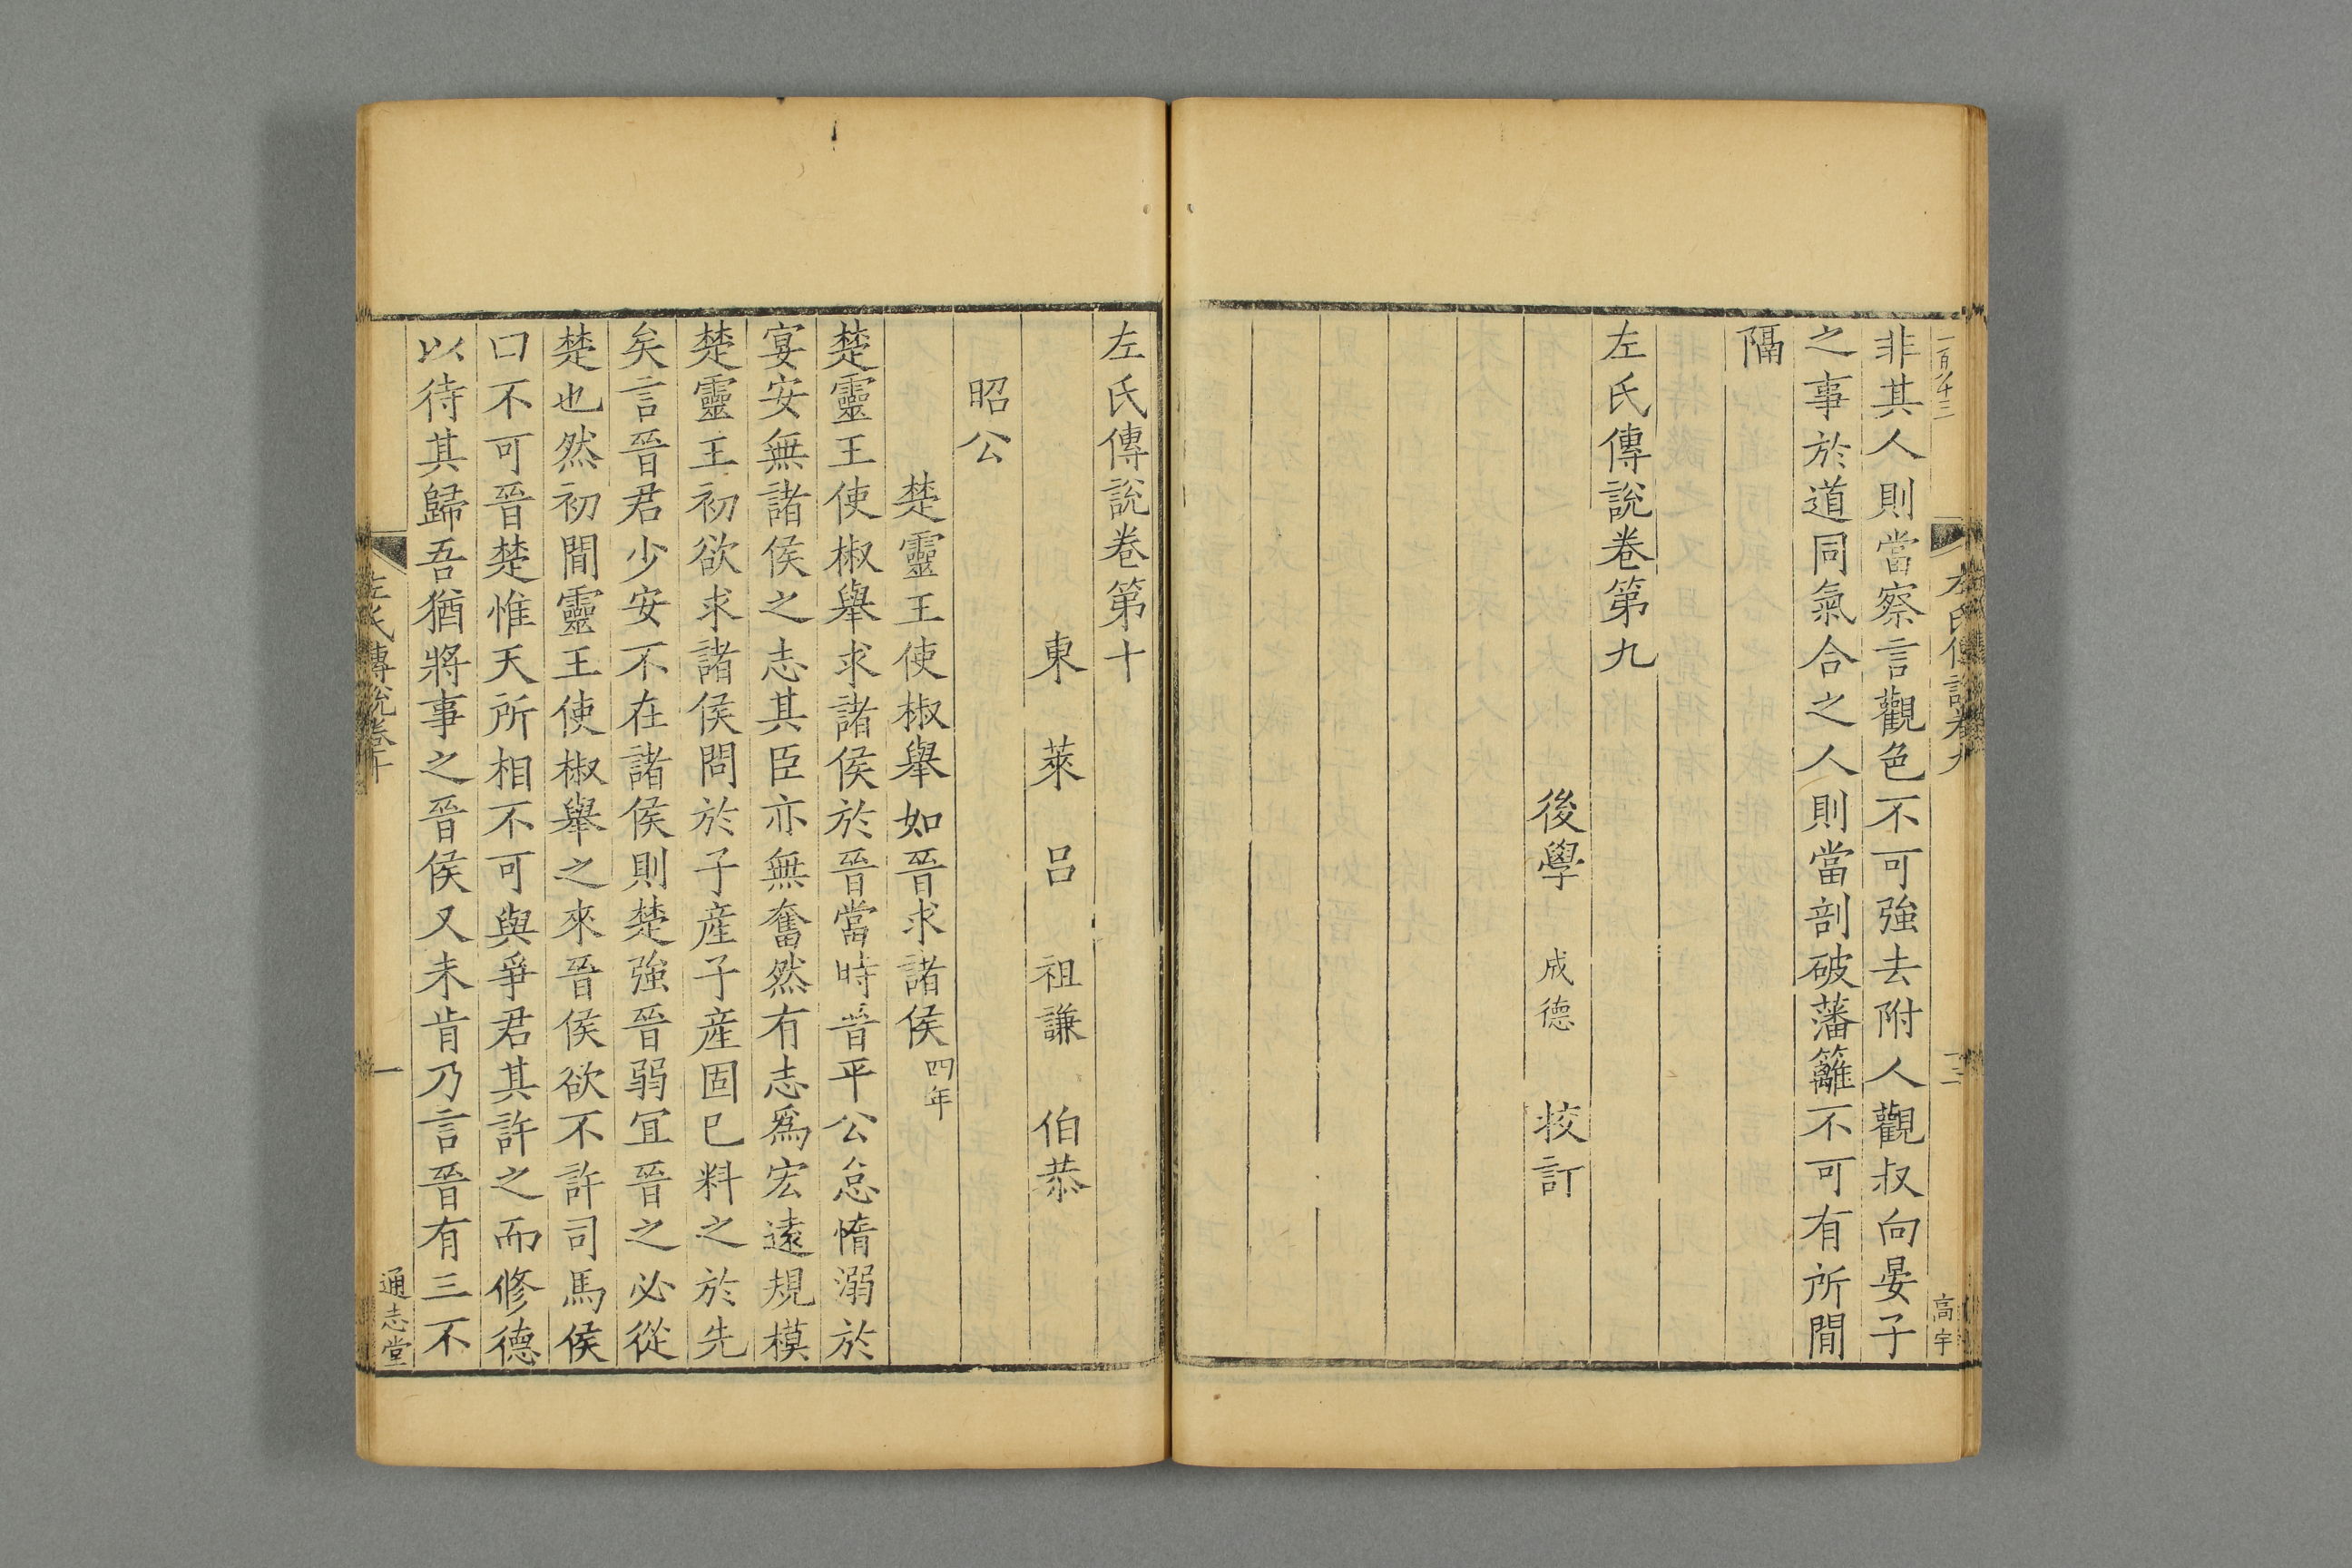 非其人則當察言觀色不可強去附人觀叔向晏子
之事於道同氣合之人則當剖破藩籬不可有所間
隔
左氏傳說卷第九
後學 成德 校訂
左氏傳說卷九
十三
高宇
左氏傳說卷第十
東萊呂 祖謙 伯恭
昭公
楚靈王使椒舉如晉求諸侯四年
楚靈王使椒舉求諸侯於晉當時晉平公怠惰溺於
宴安無諸侯之志其臣亦無奮然有志爲宏遠規模
楚靈王初欲求諸侯問於子産子産固已料之於先
矣言晉君少安不在諸侯則楚強晉弱冝晉之必從
楚也然初間靈王使椒舉之來晉侯欲不許司馬侯
曰不可晉楚惟天所相不可與爭君其許之而修德
以待其歸吾猶將事之晉侯又未肯乃言晉有三不
左氏傳說卷十
一
通志堂